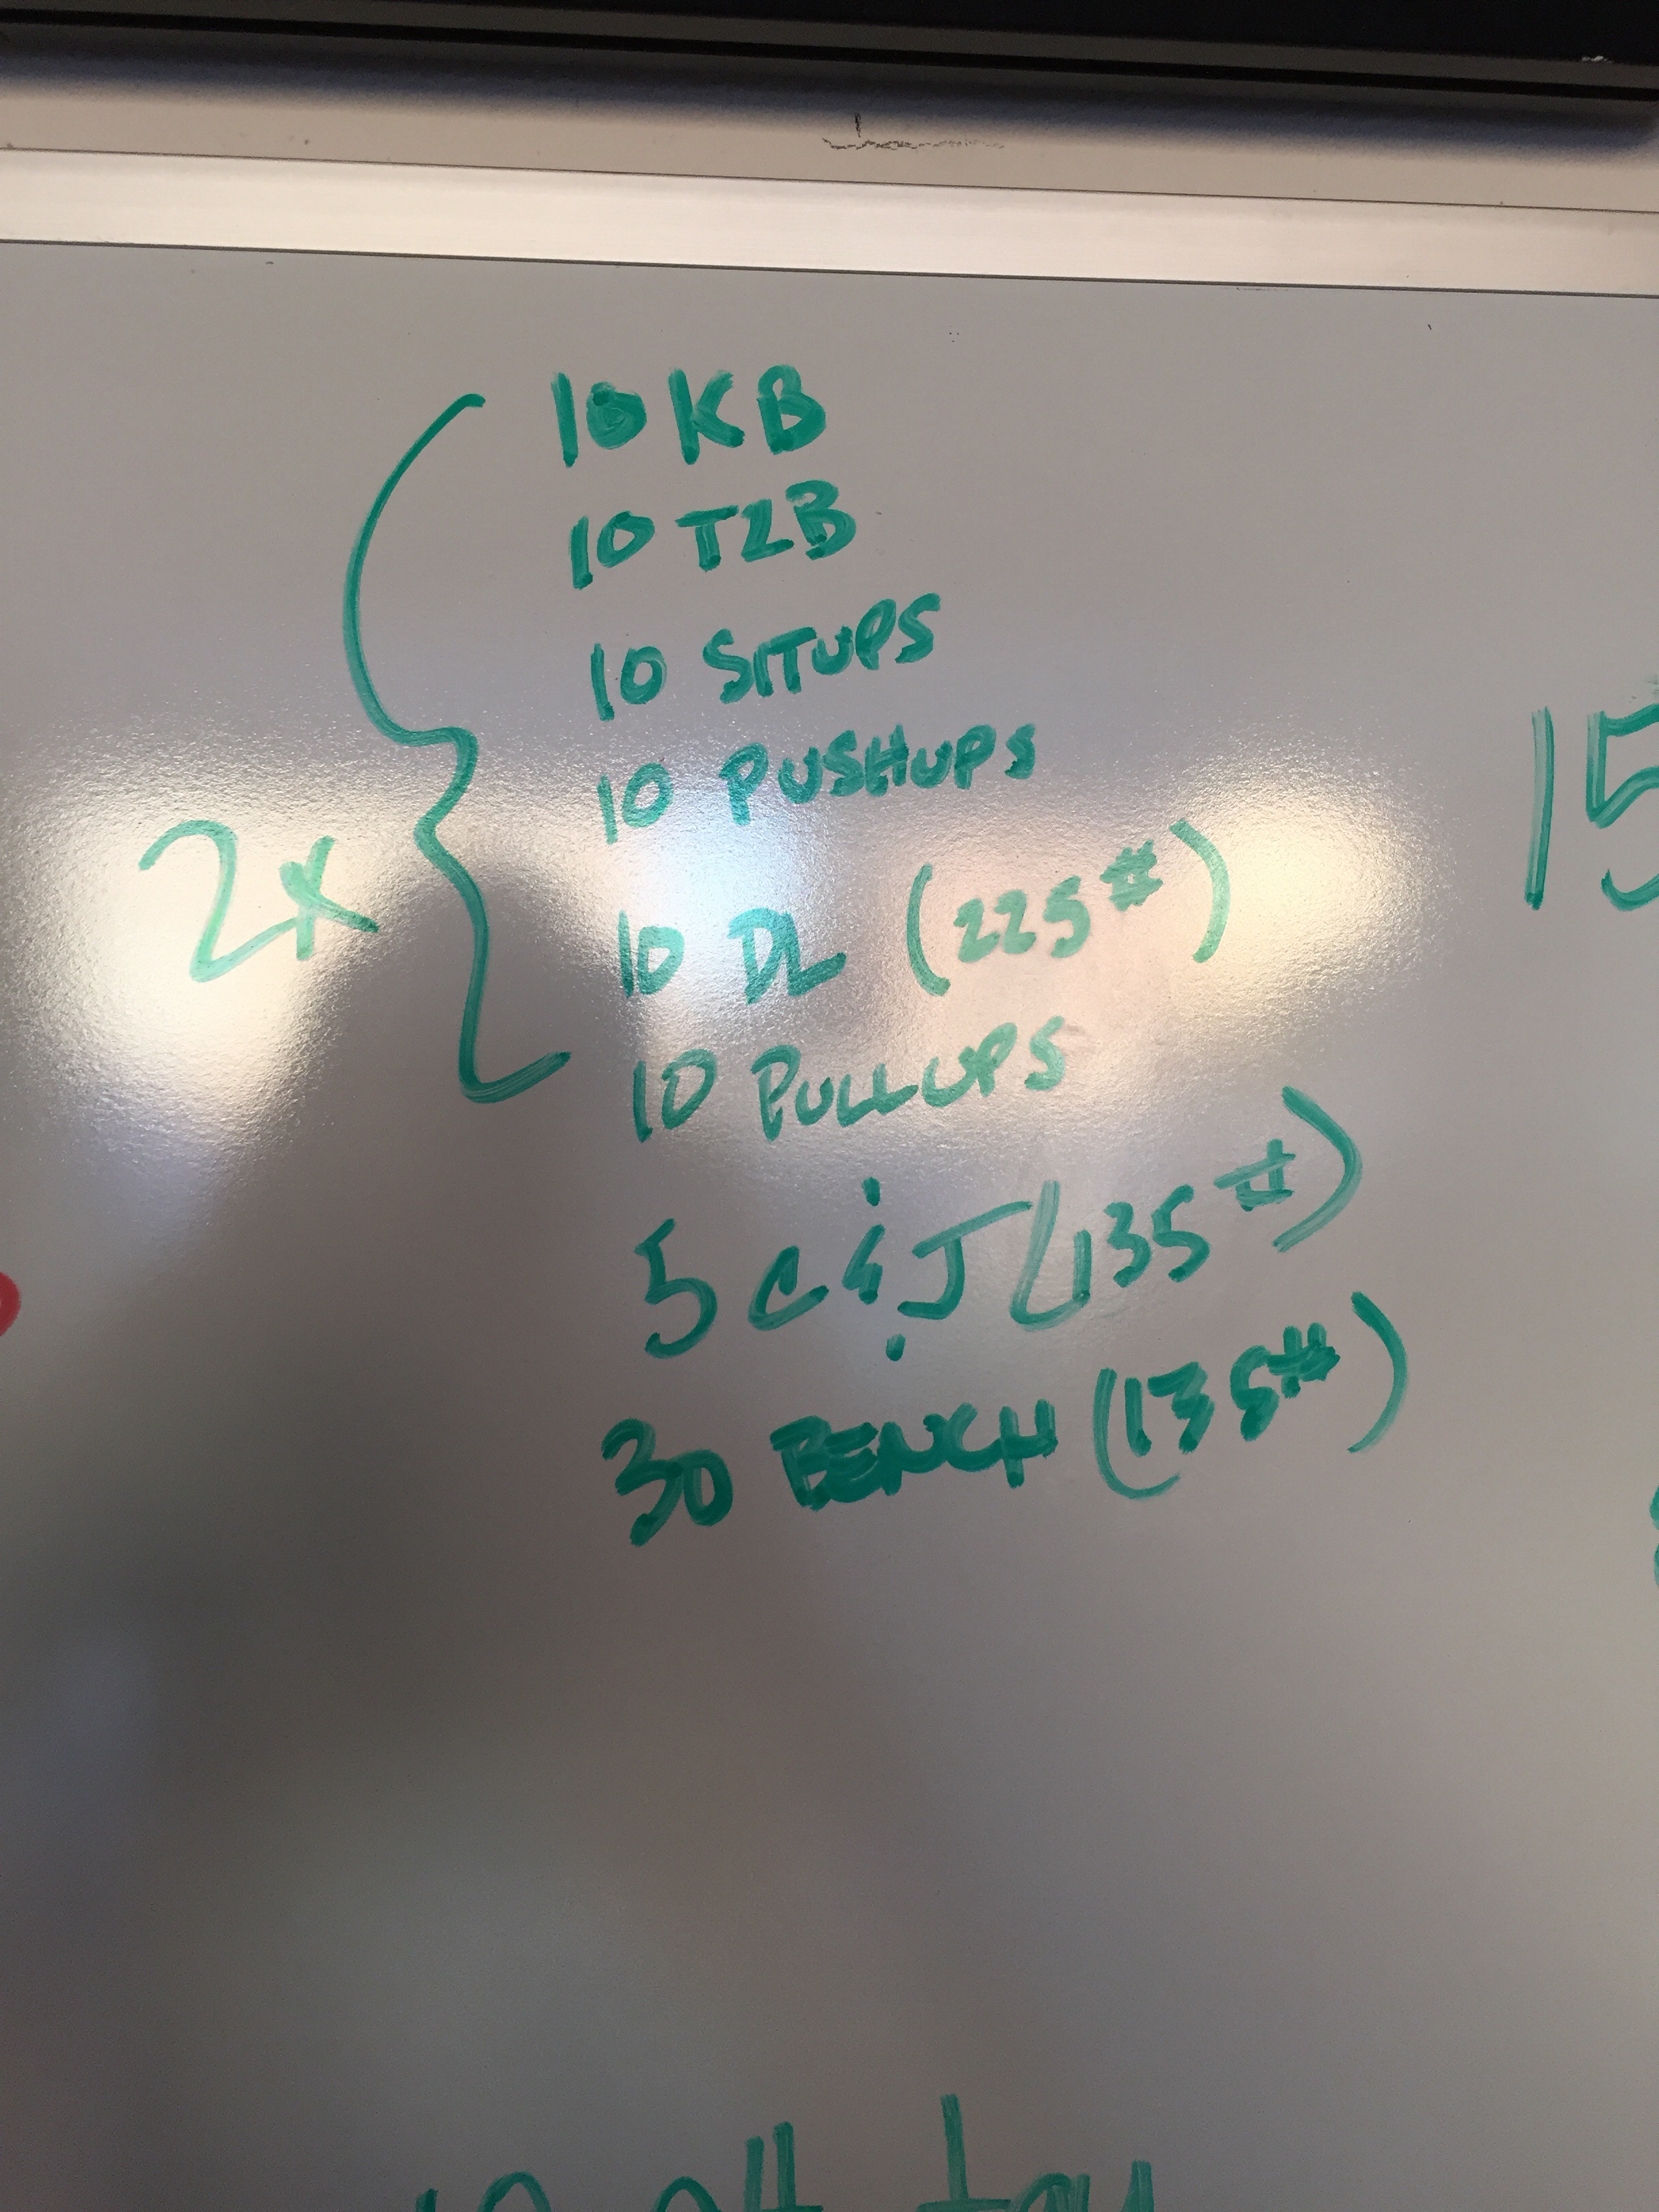 10 KB
10 T2B
10 SITUPS
10 PUSHUPS
2x
10 DL (225#)
10 PULLUPS
5 C & J (135#)
30 BENCH (135#)
15